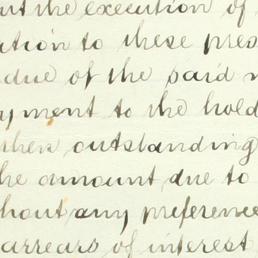 ut the execution of
ation to these pres
due of the said m
yment to the hold
then outstanding
he amount due to
hout any preference
arrears of interest